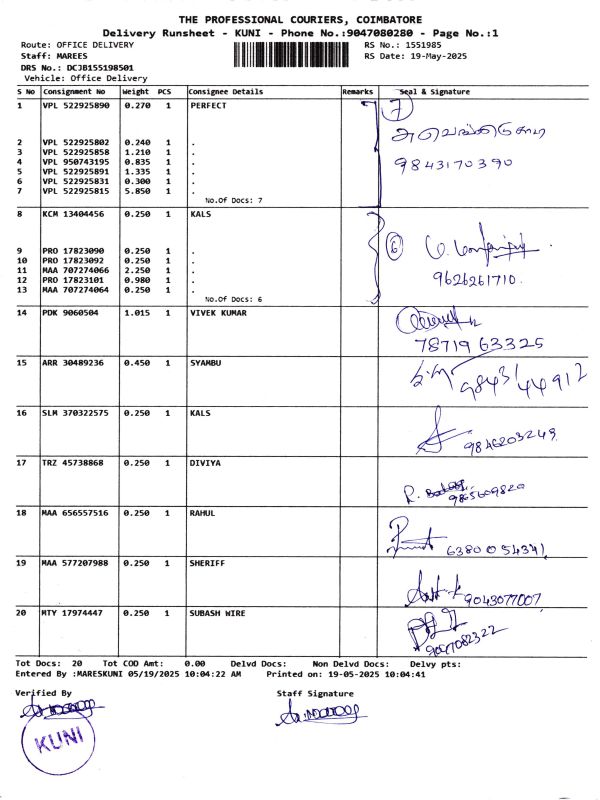 THE PROFESSIONAL COURIERS, COIMBATORE
Delivery Runsheet - KUNI - Phone No.:9047080280 - Page No.:1
Route: OFFICE DELIVERY RS No.: 1551985
Staff: MAREES RS Date: 19-May-2025
DRS No.: DCJB155198501
Vehicle: Office Delivery
S No Consignment No Weight PCS Consignee Details Remarks Seal & Signature
1 VPL 522925890 0.270 1 PERFECT 7
2 VPL 522925802 0.240 1 .
3 VPL 522925858 1.210 1 .
4 VPL 950743195 0.835 1 . 9843170390
5 VPL 522925891 1.335 1 .
6 VPL 522925831 0.300 1 .
7 VPL 522925815 5.850 1 .
No.Of Docs: 7
8 KCM 13404456 0.250 1 KALS
9 PRO 17823090 0.250 1 . 6
10 PRO 17823092 0.250 1 .
11 MAA 707274066 2.250 1 .
12 PRO 17823101 0.980 1 . 9626261710
13 MAA 707274064 0.250 1 .
No.Of Docs: 6
14 PDK 9060504 1.015 1 VIVEK KUMAR
7871963325
15 ARR 30489236 0.450 1 SYAMBU
9843144912
16 SLM 370322575 0.250 1 KALS
9846203249
17 TRZ 45738868 0.250 1 DIVIYA
9865609820
18 MAA 656557516 0.250 1 RAHUL
6380054341
19 MAA 577207988 0.250 1 SHERIFF
9043077007
20 MTY 17974447 0.250 1 SUBASH WIRE
Tot Docs: 20 Tot COD Amt: 0.00 Delvd Docs: Non Delvd Docs: Delvy pts:
Entered By :MARESKUNI 05/19/2025 10:04:22 AM Printed on: 19-05-2025 10:04:41
Verified By Staff Signature
KUNI